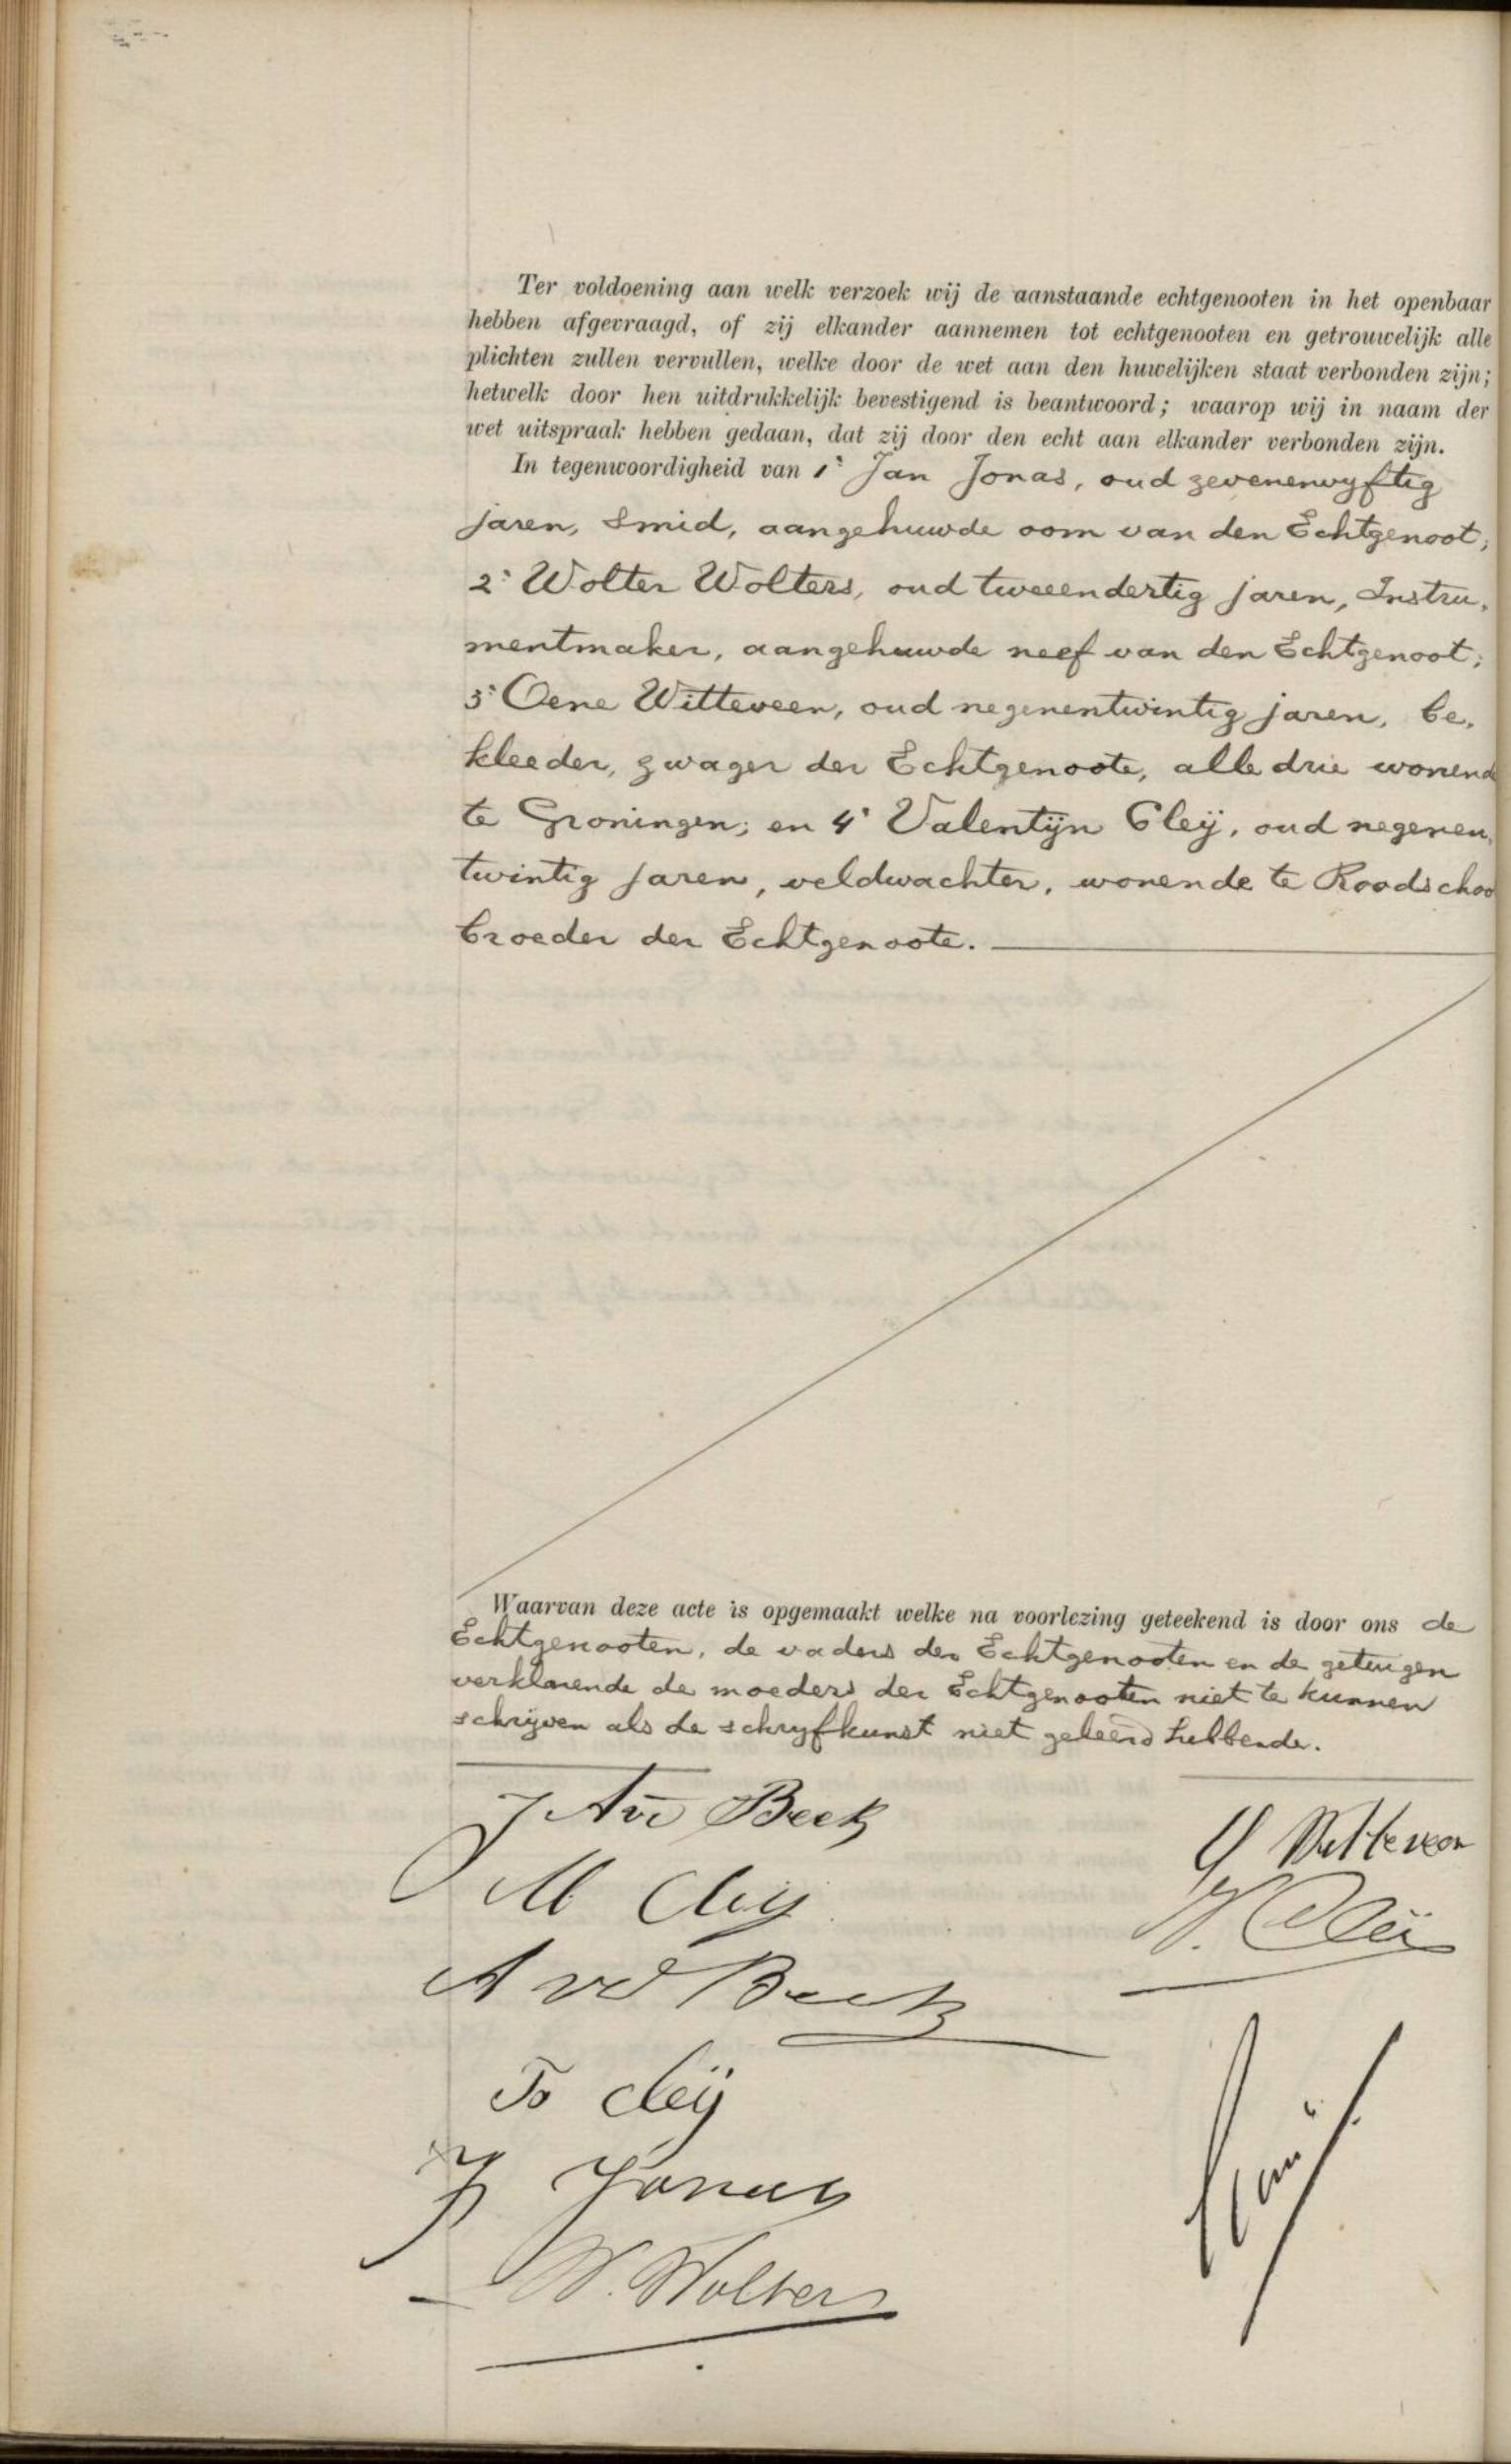 Ter voldoening aan welk verzoek wij de aanstaande echtgenooten in het openbaar
hebben afgevraagd, of zij elkander aannemen tot echtgenooten en getrouwelijk alle
plichten zullen vervullen, welke door de wet aan den huwelijken staat verbonden zijn;
hetwelk door hen uitdrukkelijk bevestigend is beantwoord; waarop wij in naam der
wet uitspraak hebben gedaan, dat zij door den echt aan elkander verbonden zijn.
In tegenwoordigheid van 1° Jan Jonas, oud zevenenvyftig
jaren, Smid, aangehuwde oom van den Echtgenoot;
2° Wolter Wolters, oud tweeendertig jaren, Instru,
mentmaker, aangehuwde neef van den Echtgenoot;
3° Oene Witteveen, oud negenentwintig jaren, be,
kleeder, zwager der Echtgenoote, alle drie wonend
te Groningen; en 4° Valentijn Cleij, oud negenen,
twintig jaren, veldwachter, wonende te Roodschoo
broeder der Echtgenoote.
Waarvan deze acte is opgemaakt welke na voorlezing geteekend is door ons de
Echtgenooten, de vaders der Echtgenooten en de getuigen
verklarende de moeders der Echtgenooten niet te kunnen
schrijven als de schryfkunst niet geleerd hebbende.
J A vd Beek
O Witteveen
M Cleij
V. Cleij
A vd Beek
Js Cleij
J Jonas
W. Wolters